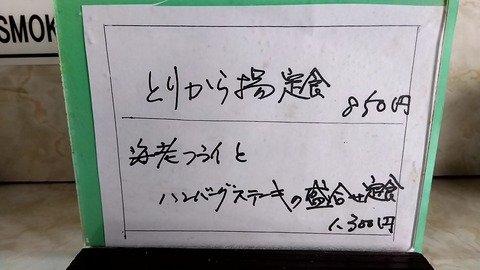 SMOK
とりから揚定食
850円
海老フライと
ハンバーグステーキの盛合せ定食
1,300円